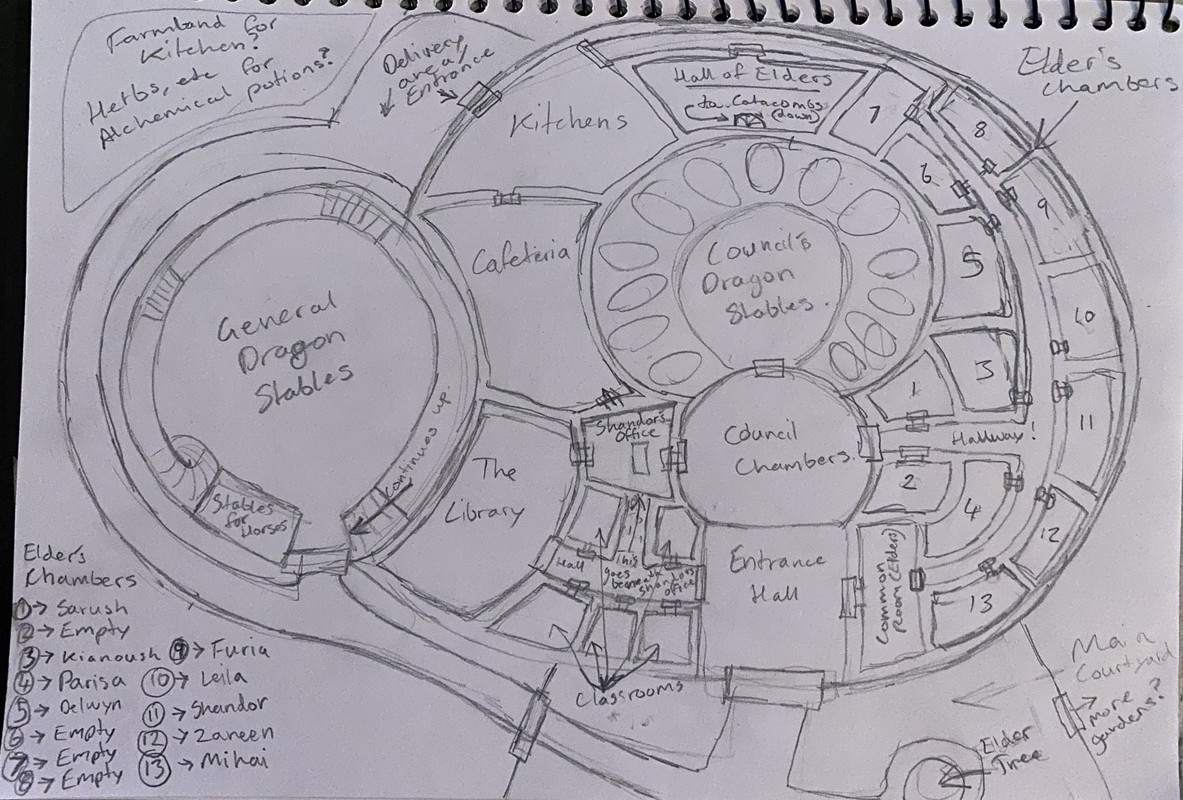 Farmland for
Kitchen?
Herbs, etc for
Alchemical potions?
Delivery
area/
Entrance
Kitchens
Hall of Elders
to Catacombs
(down)
Elder's
chambers
7
8
6
9
5
10
3
1
11
Hallway!
2
4
12
13
Cafeteria
Council's
Dragon
Stables.
General
Dragon
Stables
continues up
Stables
for
Horses
Shandor's
Office
Council
Chambers.
The
Library
Hall
this
goes
beneath
Shandor's
office
Entrance
Hall
Common
Room (Elders)
Classrooms
Main
Courtyard
more
gardens?
Elder
Tree
Elder's
Chambers
1 → Sarush
2 → Empty
3 → Kianoush
4 → Parisa
5 → Delwyn
6 → Empty
7 → Empty
8 → Empty
9 → Furia
10 → Leila
11 → Shandor
12 → Zaneen
13 → Mihai